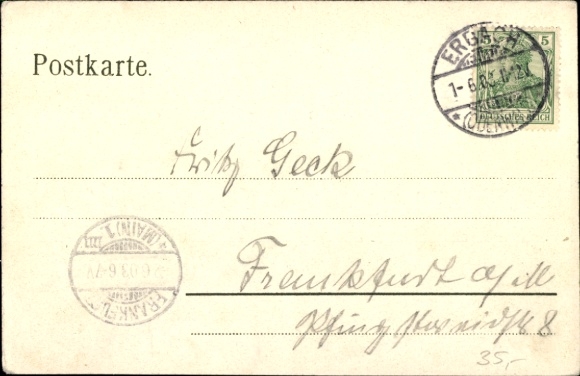 Postkarte.
5
DEUTSCHES REICH
ERBACH
1-6.03.
(ODENW.)
Fritz Geck
Frankfurt a/M
8
FRANKFURT
(MAIN) 1.
6.03.6-7V
35,-